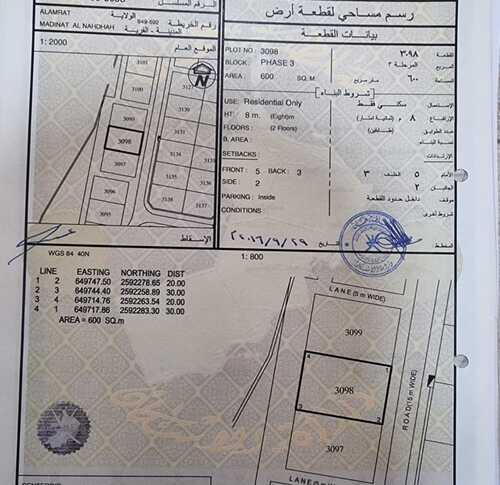 ALAMRAT
الولاية
الرقم المسلسل
MADINAT AL NAHDHAH
المدينة - القرية
849-592
رقم الخريطة
1: 2000
الموقع العام
3100
3099
3098
3097
3096
3095
3127
3131
3134
3135
3137
الإسقاط
رسم مساحي لقطعة أرض
بيانات القطعة
PLOT NO : 3098
٣٠٩٨
القطعة
BLOCK : PHASE 3
المرحلة ٣
المربع
AREA : 600 SQ. M
٦٠٠ متر مربع
المساحة
شروط البناء
USE: Residential Only
سكني فقط
الإستعمال
HT : 8 m. (Eight)m
٨ م (ثمانية أمتار)
الإرتفاع
FLOORS : (2 Floors)
(طابقين)
عدد الطوابق
B. AREA :
نسبة البناء
SETBACKS :
الإرتدادات
FRONT : 5 BACK : 3
الأمام ٥ الخلف ٣
SIDE : 2
الجانبين ٢
PARKING : Inside
داخل حدود القطعة
موقف
CONDITIONS
شروط أخرى
المخطط
التاريخ
٢٠١٦/٩/٢٩
WGS 84 40N
1: 800
LINE EASTING NORTHING DIST
1 2 649747.50 2592278.65 20.00
2 3 649744.40 2592258.89 30.00
3 4 649714.76 2592263.54 20.00
4 1 649717.86 2592283.30 30.00
AREA = 600 SQ.m
LANE (5 m WIDE)
3099
4 1
3098
3 2
3097
ROAD (15 m WIDE)
LANE (5 m WIDE)